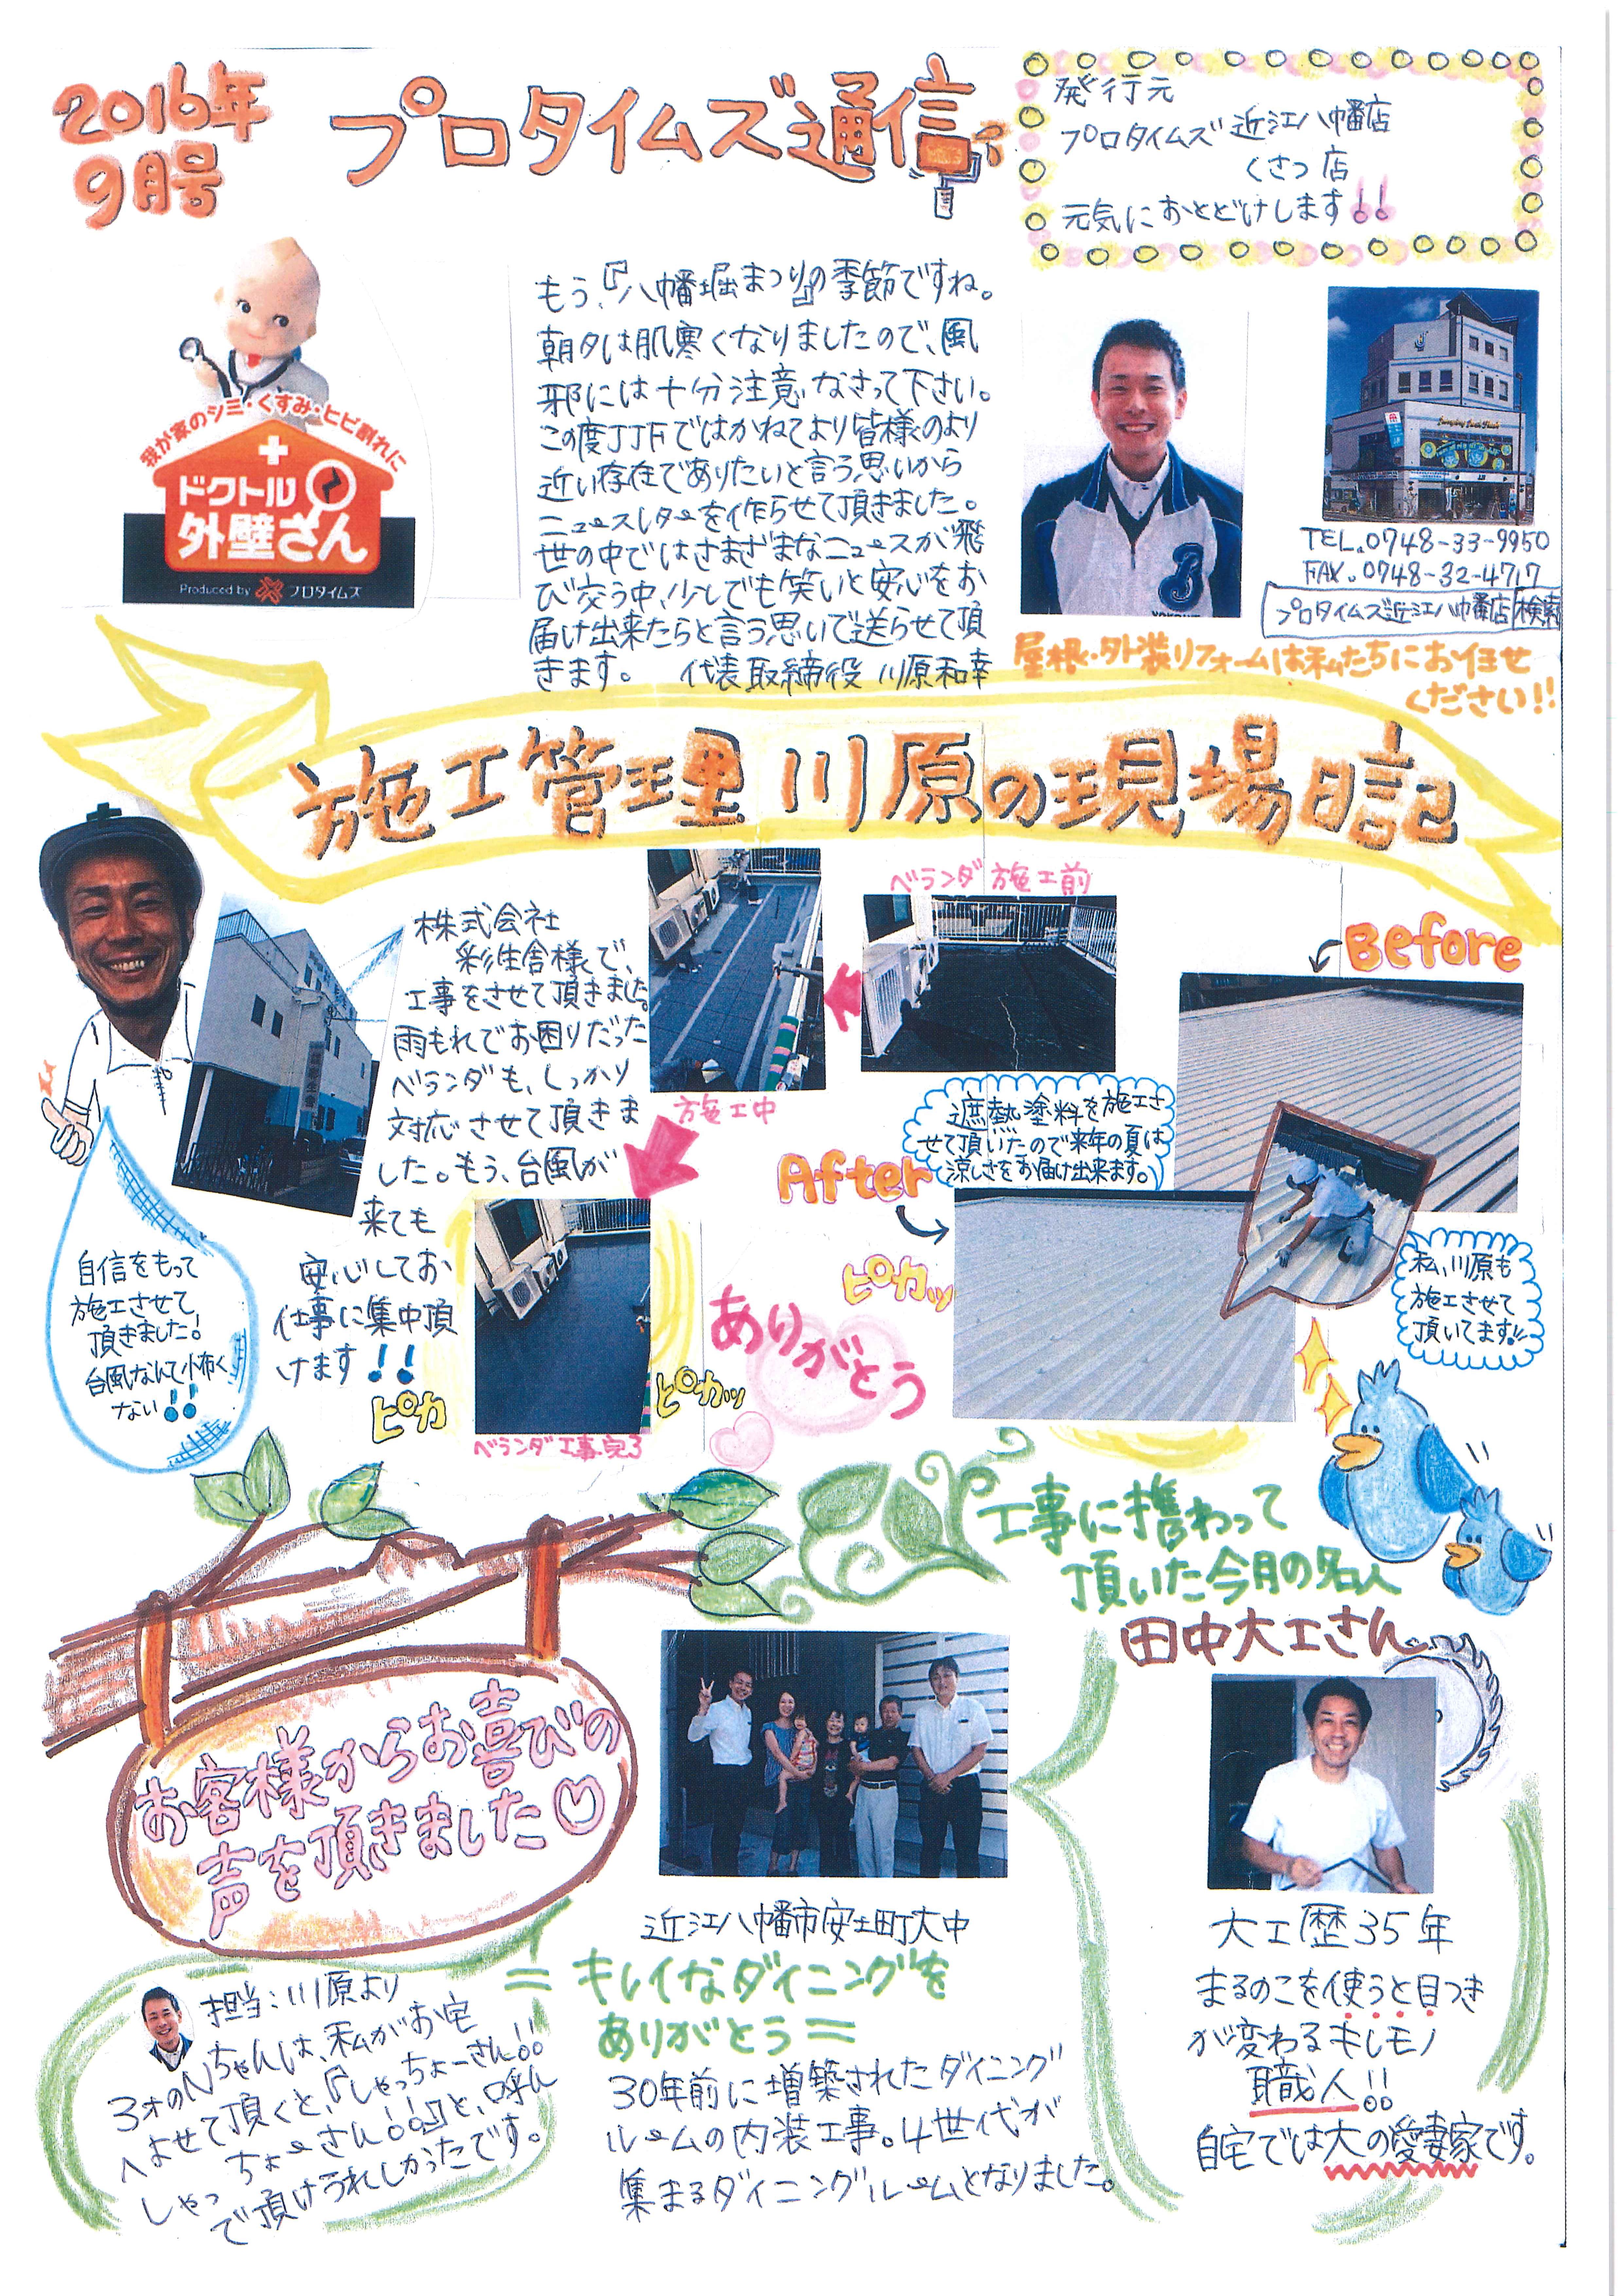 2016年
9月号
プロタイムズ通信
発行元
プロタイムズ 近江八幡店
くさつ店
元気におとどけします!!
我が家のシミ・くすみ・ヒビ割れに
ドクトル
外壁さん
Produced by プロタイムズ
もう、『八幡堀まつり』の季節ですね。
朝夕は肌寒くなりましたので、風
邪には十分注意なさって下さい。
この度JJFではかねてより皆様のより
近い存在でありたいと言う思いから
ニュースレターを作らせて頂きました。
世の中ではさまざまなニュースが飛
び交う中、少しでも笑いと安心をお
届け出来たらと言う思いで送らせて頂
きます。 代表取締役 川原和幸
TEL.0748-33-9950
FAX.0748-32-4717
プロタイムズ近江八幡店 検索
屋根・外装リフォームは私たちにお任せ
ください!!
施工管理 川原の現場日記
株式会社
彩生舎様で、
工事をさせて頂きました。
雨もれでお困りだった
ベランダも、しっかり
対応させて頂きま
した。もう、台風が
来ても
安心してお
仕事に集中頂
けます!!
自信をもって
施工させて
頂きました!
台風なんて怖く
ない!!
ベランダ施工前
施工中
ピカ
ピカッ
ベランダ工事完了
Before
遮熱塗料を施工さ
せて頂いたので来年の夏は
涼しさをお届け出来ます。
After
ピカッ
ありがとう
私、川原も
施工させて
頂いてます!!
工事に携わって
頂いた今月の名人
田中大工さん
お客様からお喜びの
声を頂きました♡
近江八幡市安土町大中
=キレイなダイニングを
ありがとう=
30年前に増築されたダイニング
ルームの内装工事。4世代が
集まるダイニングルームとなりました。
担当:川原より
3才のNちゃんは、私がお宅
へよせて頂くと、『しゃっちょーさん!!
しゃっちょーさん!!』と、呼ん
で頂けうれしかったです。
大工歴35年
まるのこを使うと目つき
が変わるキレモノ
職人!!
自宅では大の愛妻家です。